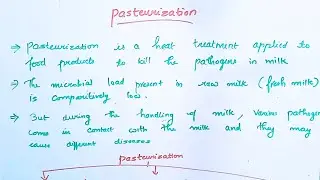 Pasteurization
→ Pasteurization is a heat treatment applied to
food products to kill the pathogens in milk
→ The microbial load present in raw milk (fresh milk)
is comparitively less.
→ But during the handling of milk, various pathogen
comes in contact with the milk and they may
cause different diseases
pasteurization